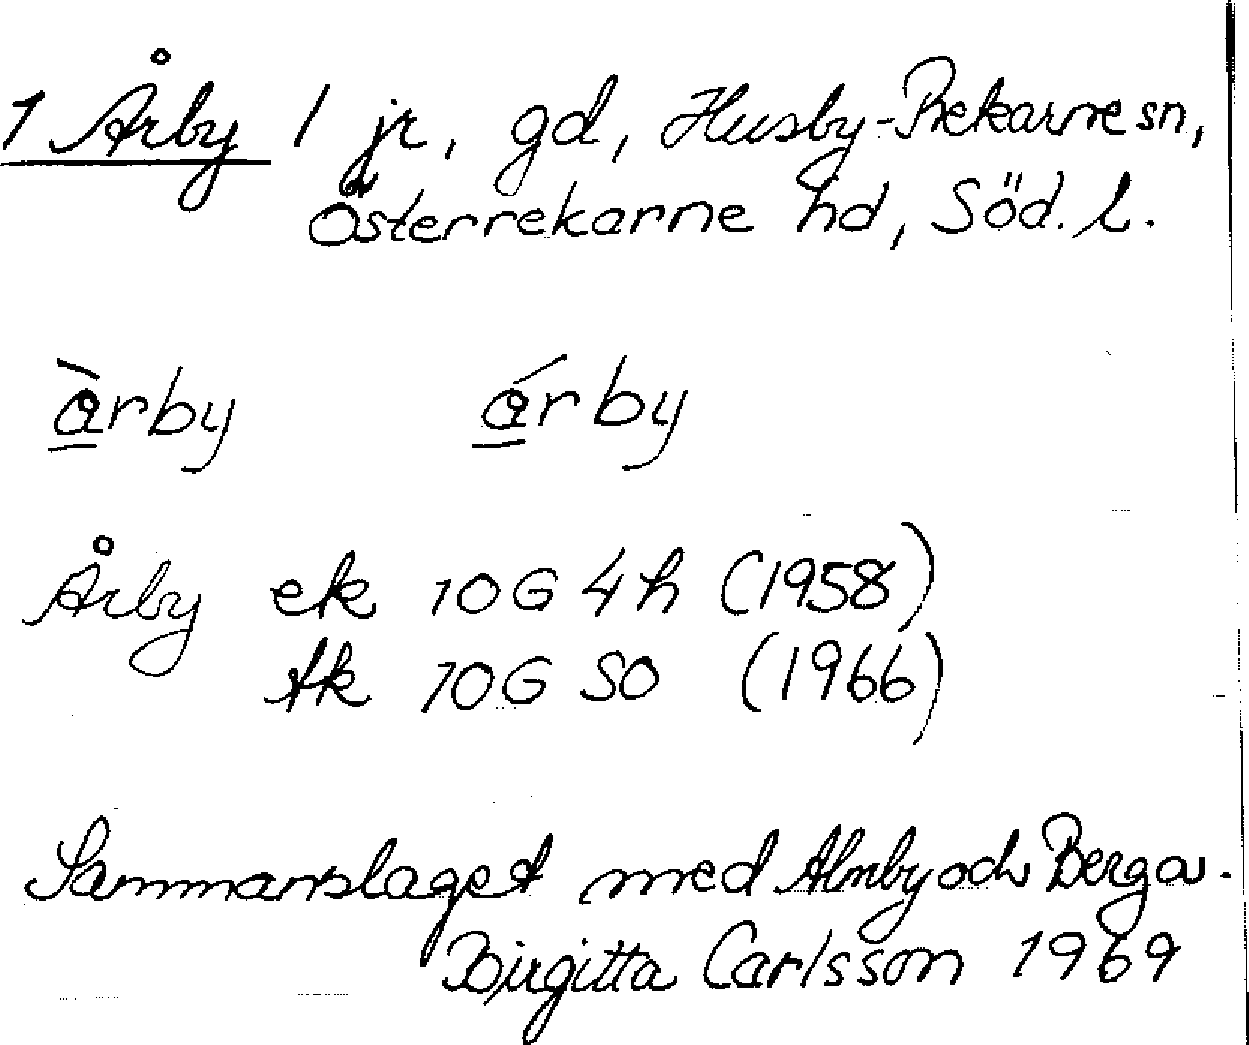 1 Årby 1 jr, gd, Husby-Rekarne sn,
Österrekarne hd, Söd. l.
å̀rby ǻrby
Årby ek 10G 4h (1958)
tk 10G SO (1966)
Sammanslaget med Almby och Berga.
Birgitta Carlsson 1969